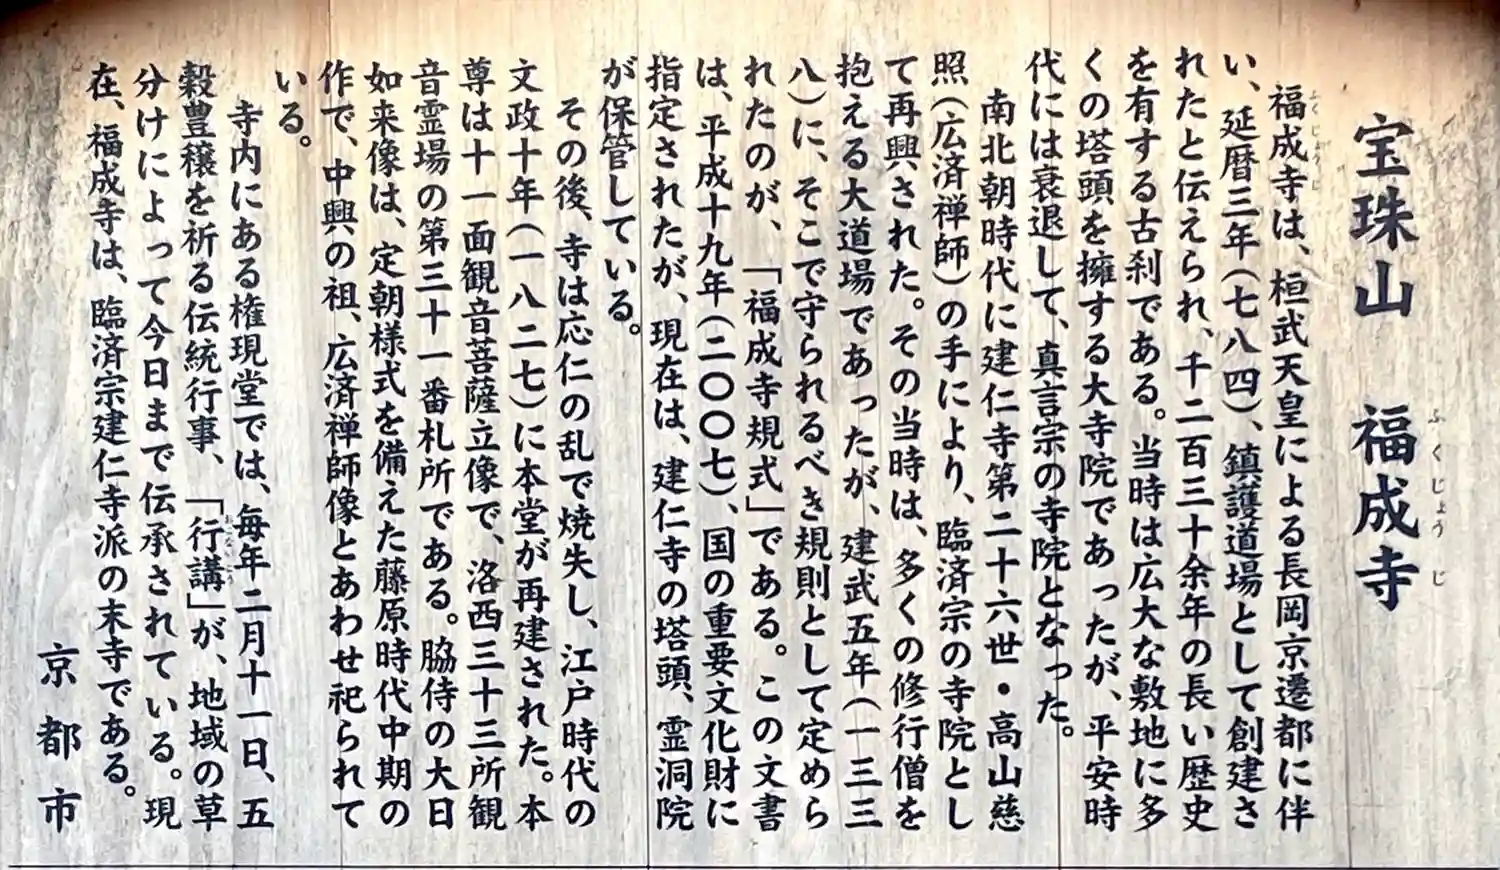 宝珠山 福成寺
ふくじょうじ
福成寺は、桓武天皇による長岡京遷都に伴
ふくじょうじ
い、延暦三年(七八四)、鎮護道場として創建さ
れたと伝えられ、千二百三十余年の長い歴史
を有する古刹である。当時は広大な敷地に多
くの塔頭を擁する大寺院であったが、平安時
代には衰退して、真言宗の寺院となった。
南北朝時代に建仁寺第二十六世・高山慈
照(広済禅師)の手により、臨済宗の寺院とし
て再興された。その当時は、多くの修行僧を
抱える大道場であったが、建武五年(一三三
八)に、そこで守られるべき規則として定めら
れたのが、「福成寺規式」である。この文書
は、平成十九年(二〇〇七)、国の重要文化財に
指定されたが、現在は、建仁寺の塔頭、霊洞院
が保管している。
その後、寺は応仁の乱で焼失し、江戸時代の
文政十年(一八二七)に本堂が再建された。本
尊は十一面観音菩薩立像で、洛西三十三所観
音霊場の第三十一番札所である。脇侍の大日
如来像は、定朝様式を備えた藤原時代中期の
作で、中興の祖、広済禅師像とあわせ祀られて
いる。
寺内にある権現堂では、毎年二月十一日、五
穀豊穣を祈る伝統行事、「行講」が、地域の草
おこないこう
分けによって今日まで伝承されている。現
在、福成寺は、臨済宗建仁寺派の末寺である。
京都市